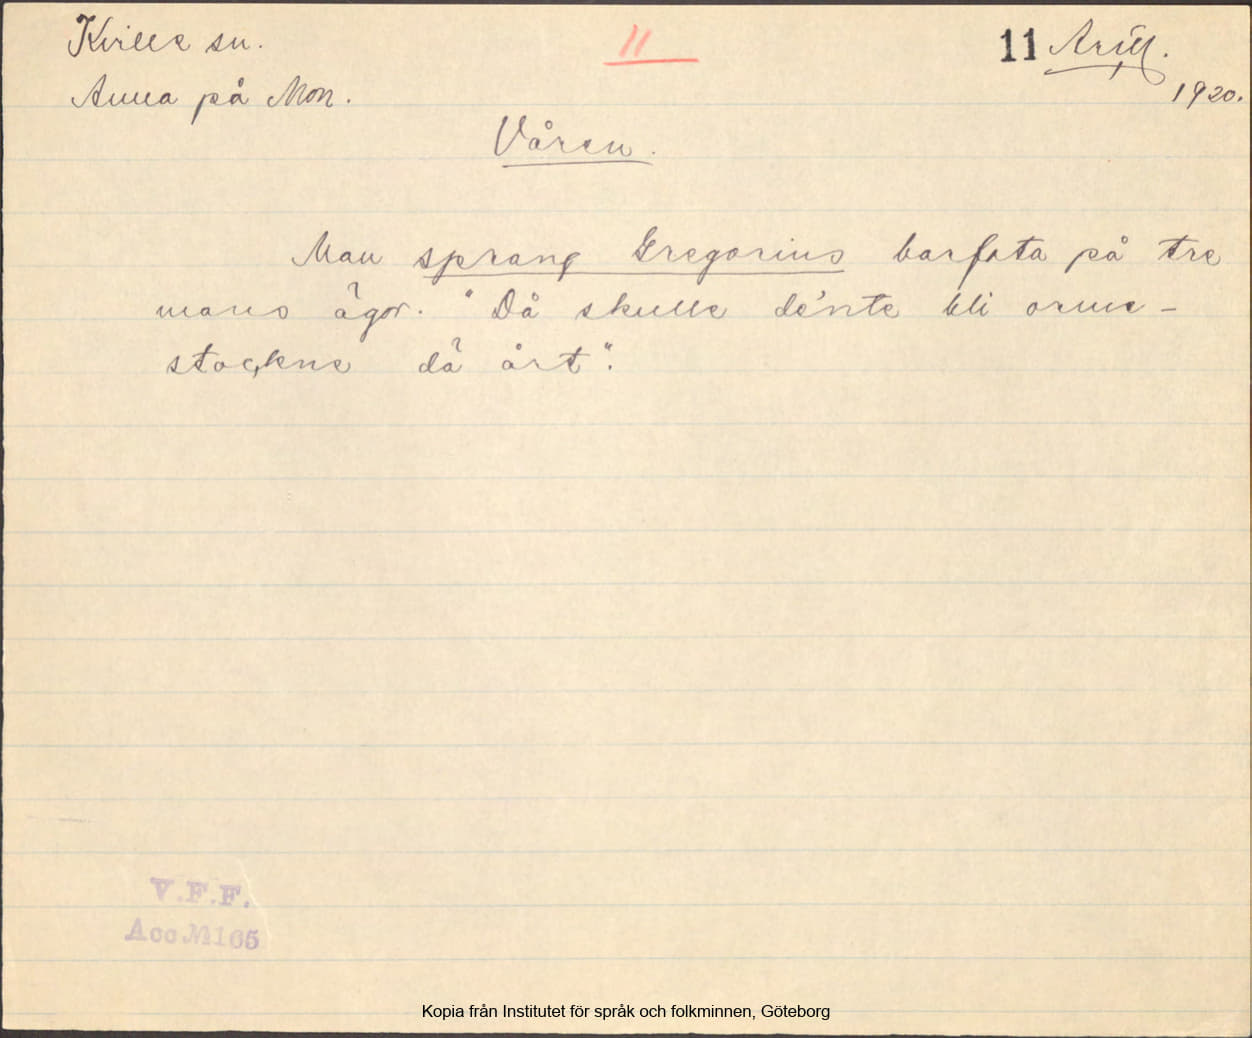 Kville sn.
11
11
1920.
Anna på Mon.
Våren.
Man sprang Gregorius barfota på tre
mans ägor. "Då skulle de'nte bli orme-
stockne dä årt".
V.F.F.
Acc.№165
Kopia från Institutet för språk och folkminnen, Göteborg